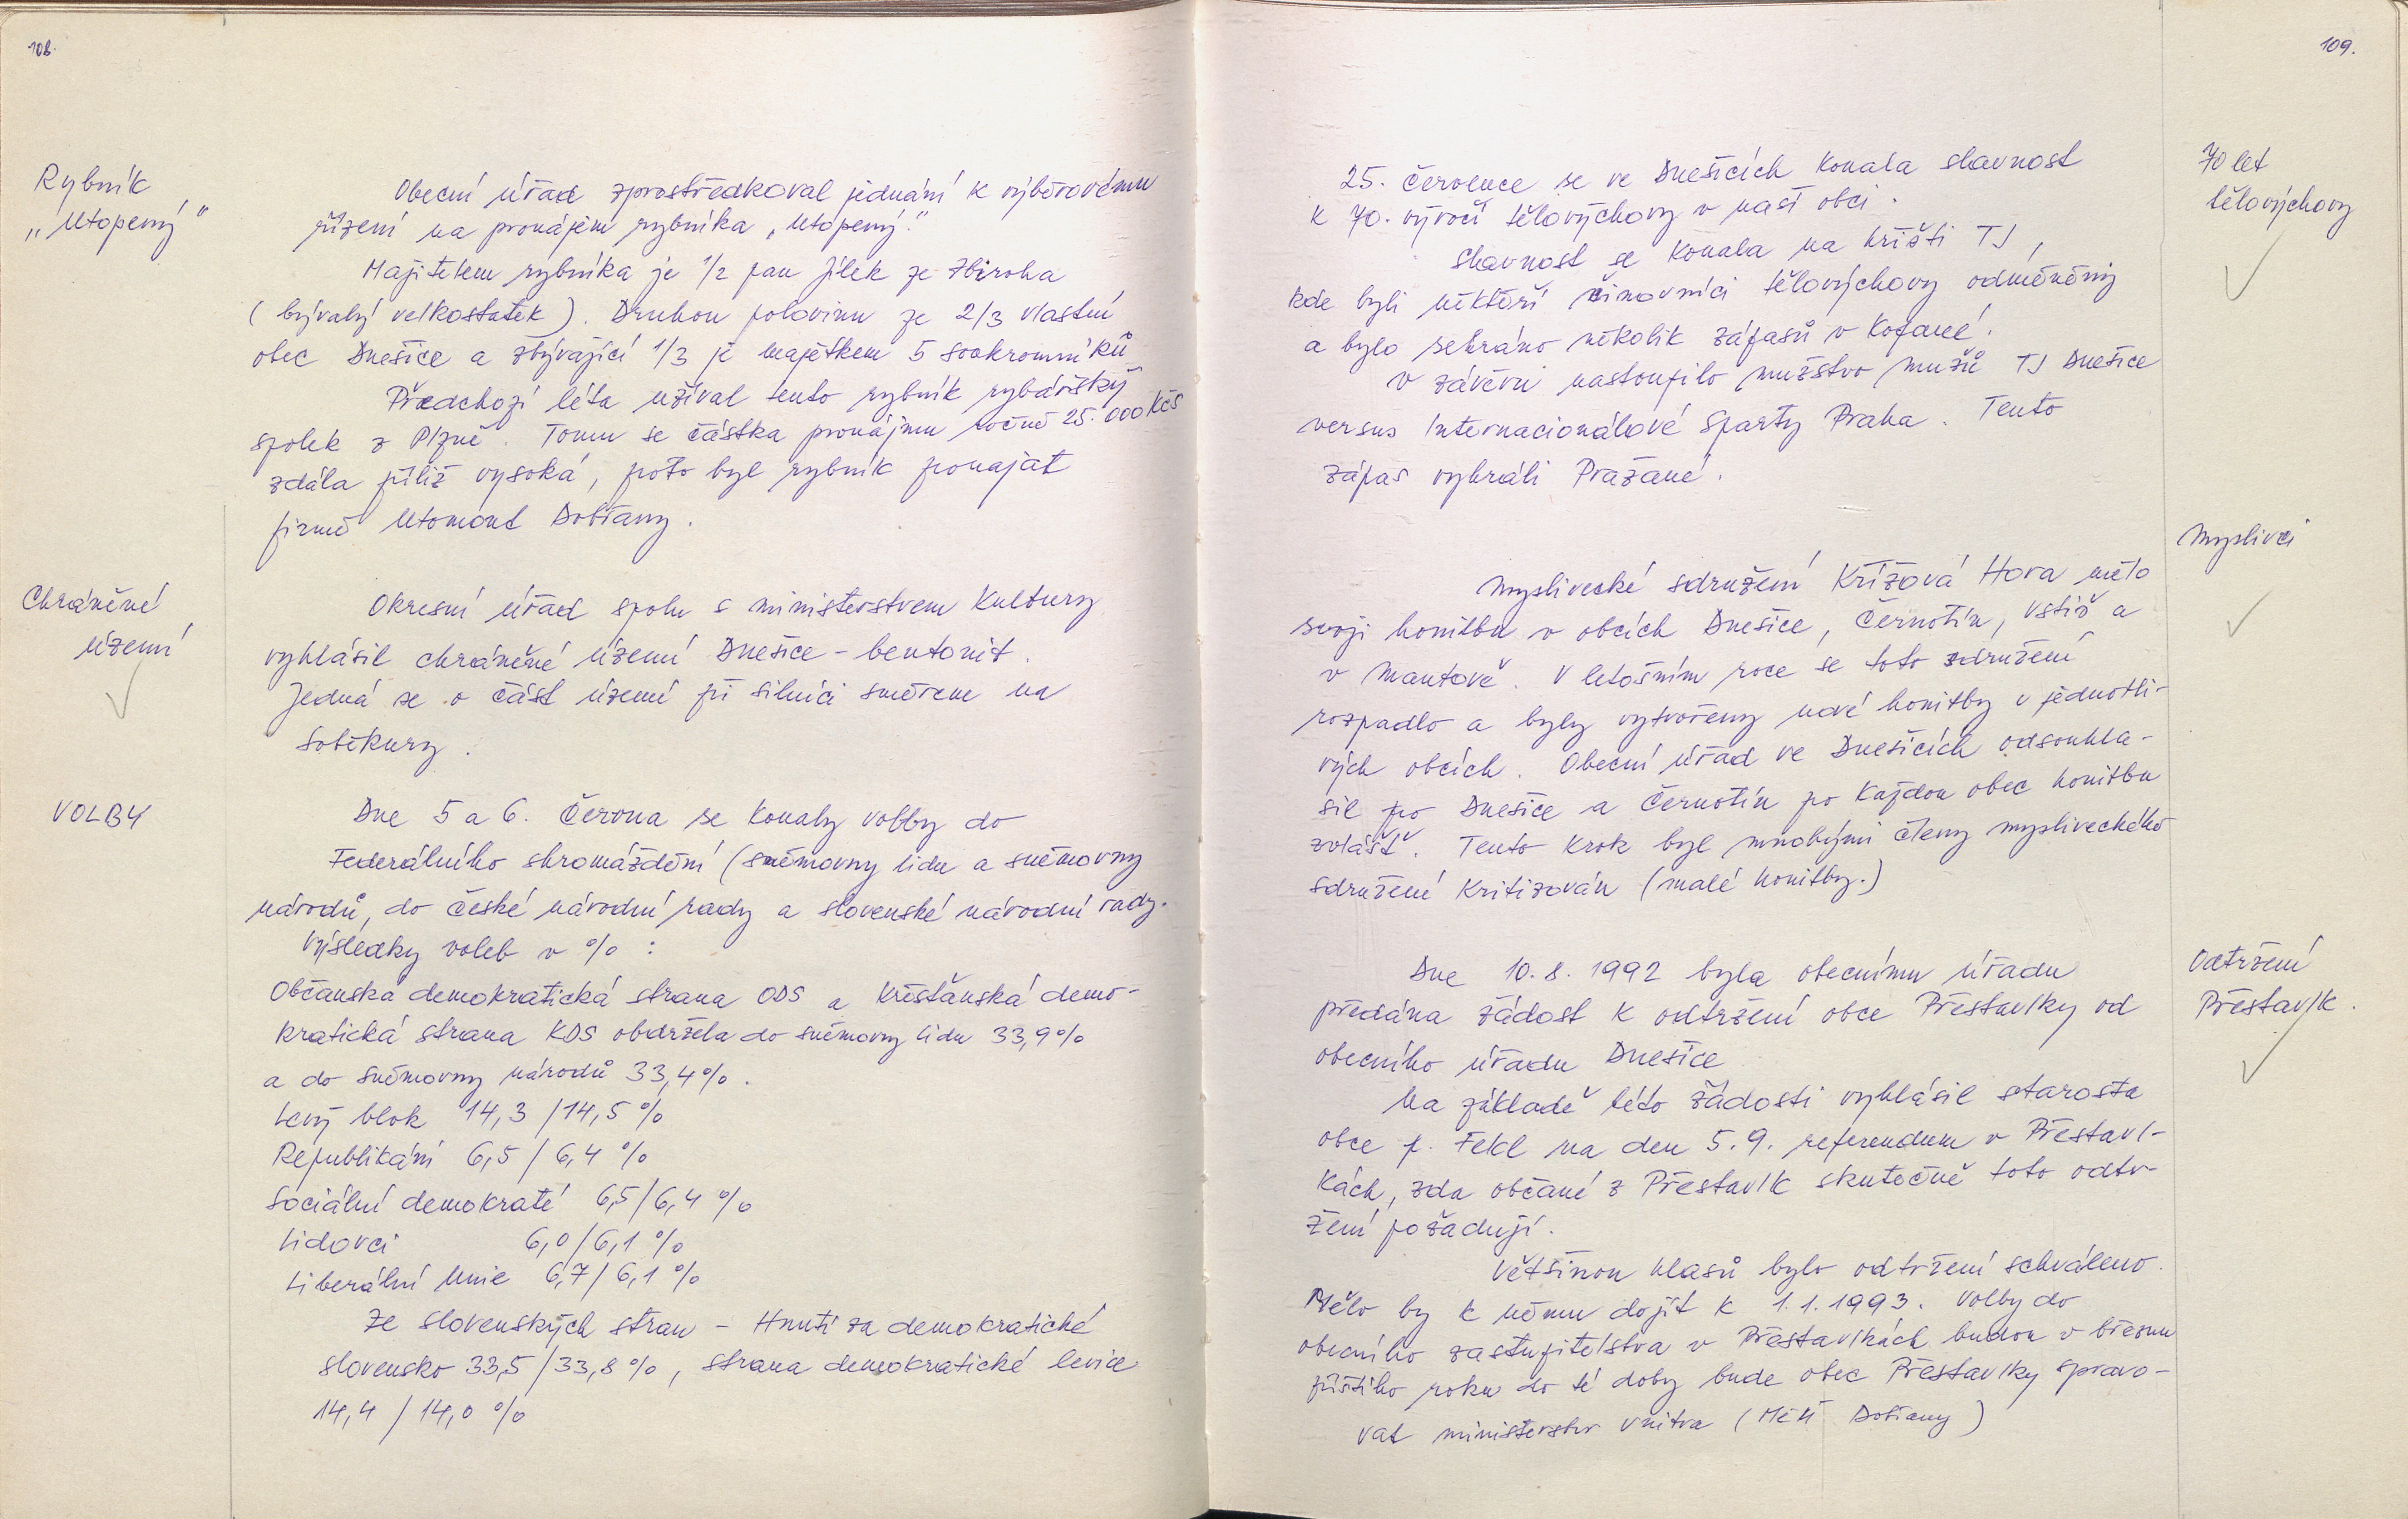 108.
Rybník
„Utopený"
Obecní úřad zprostředkoval jednání k výběrovému
řízení na pronájem rybníka „Utopený."
Majitelem rybníka je 1/2 pan Jílek ze Zbiroha
(bývalý velkostatek). Druhou polovinu ze 2/3 vlastní
obec Dnešice a zbývající 1/3 je majetkem 5 soukromníků
Předchozí léta užíval tento rybník rybářský
spolek z Plzně. Tomu se částka pronájmu ročně 25.000 Kčs
zdála příliš vysoká, proto byl rybník pronajat
firmě Utomont Dobřany.
Chráněné
území
Okresní úřad spolu s ministerstvem kultury
vyhlásil chráněné území Dnešice - bentonit.
Jedná se o část území při silnici směrem na
Soběkury.
VOLBY
Dne 5 a 6. Června se konaly volby do
Federálního shromáždění (sněmovny lidu a sněmovny
národů, do České národní rady a slovenské národní rady.
Výsledky voleb v % :
Občanská demokratická strana ODS a Křesťanská demo-
kratická strana KDS obdržela do sněmovny lidu 33,9%
a do sněmovny národů 33,4%.
Levý blok 14,3 / 14,5 %
Republikáni 6,5 / 6,4 %
Sociální demokraté 6,5 / 6,4 %
Lidovci 6,0 / 6,1 %
Liberální Unie 6,7 / 6,1 %
Ze slovenských stran - Hnutí za demokratické
slovensko 33,5 / 33,8 %, strana demokratické levice
14,4 / 14,0 %
109.
70 let
tělovýchovy
25. července se ve Dnešicích konala slavnost
k 70. výročí tělovýchovy v naší obci.
Slavnost se konala na hřišti TJ,
kde byli někteří činovníci tělovýchovy odměněny
a bylo sehráno několik zápasů v kopané.
V závěru nastoupilo mužstvo mužů TJ Dnešice
versus Internacionálové Sparty Praha. Tento
zápas vyhráli Pražané.
Myslivci
Myslivecké sdružení Křížová Hora mělo
svoji honitbu v obcích Dnešice, Černotín, Vstiš a
v Mantově. V letošním roce se toto sdružení
rozpadlo a byly vytvořeny nové honitby v jednotli-
vých obcích. Obecní úřad ve Dnešicích odsouhla-
sil pro Dnešice a Černotín po každou obec honitbu
zvlášť. Tento krok byl mnohými členy mysliveckého
sdružení kritizován (malé honitby.)
Odtržení
Přestavlk.
Dne 10.8. 1992 byla obecnímu úřadu
předána žádost k odtržení obce Přestavlky od
obecního úřadu Dnešice
Na základě této žádosti vyhlásil starosta
obce p. Fekl na den 5.9. referendum v Přestavl-
kách, zda občané z Přestavlk skutečně toto odtr-
žení požadují.
Většinou hlasů bylo odtržení schváleno.
Mělo by k němu dojít k 1.1.1993. Volby do
obecního zastupitelstva v Přestavlkách budou v březnu
příštího roku do té doby bude obec Přestavlky spravo-
vat ministerstvo vnitra (MěÚ Dobřany)